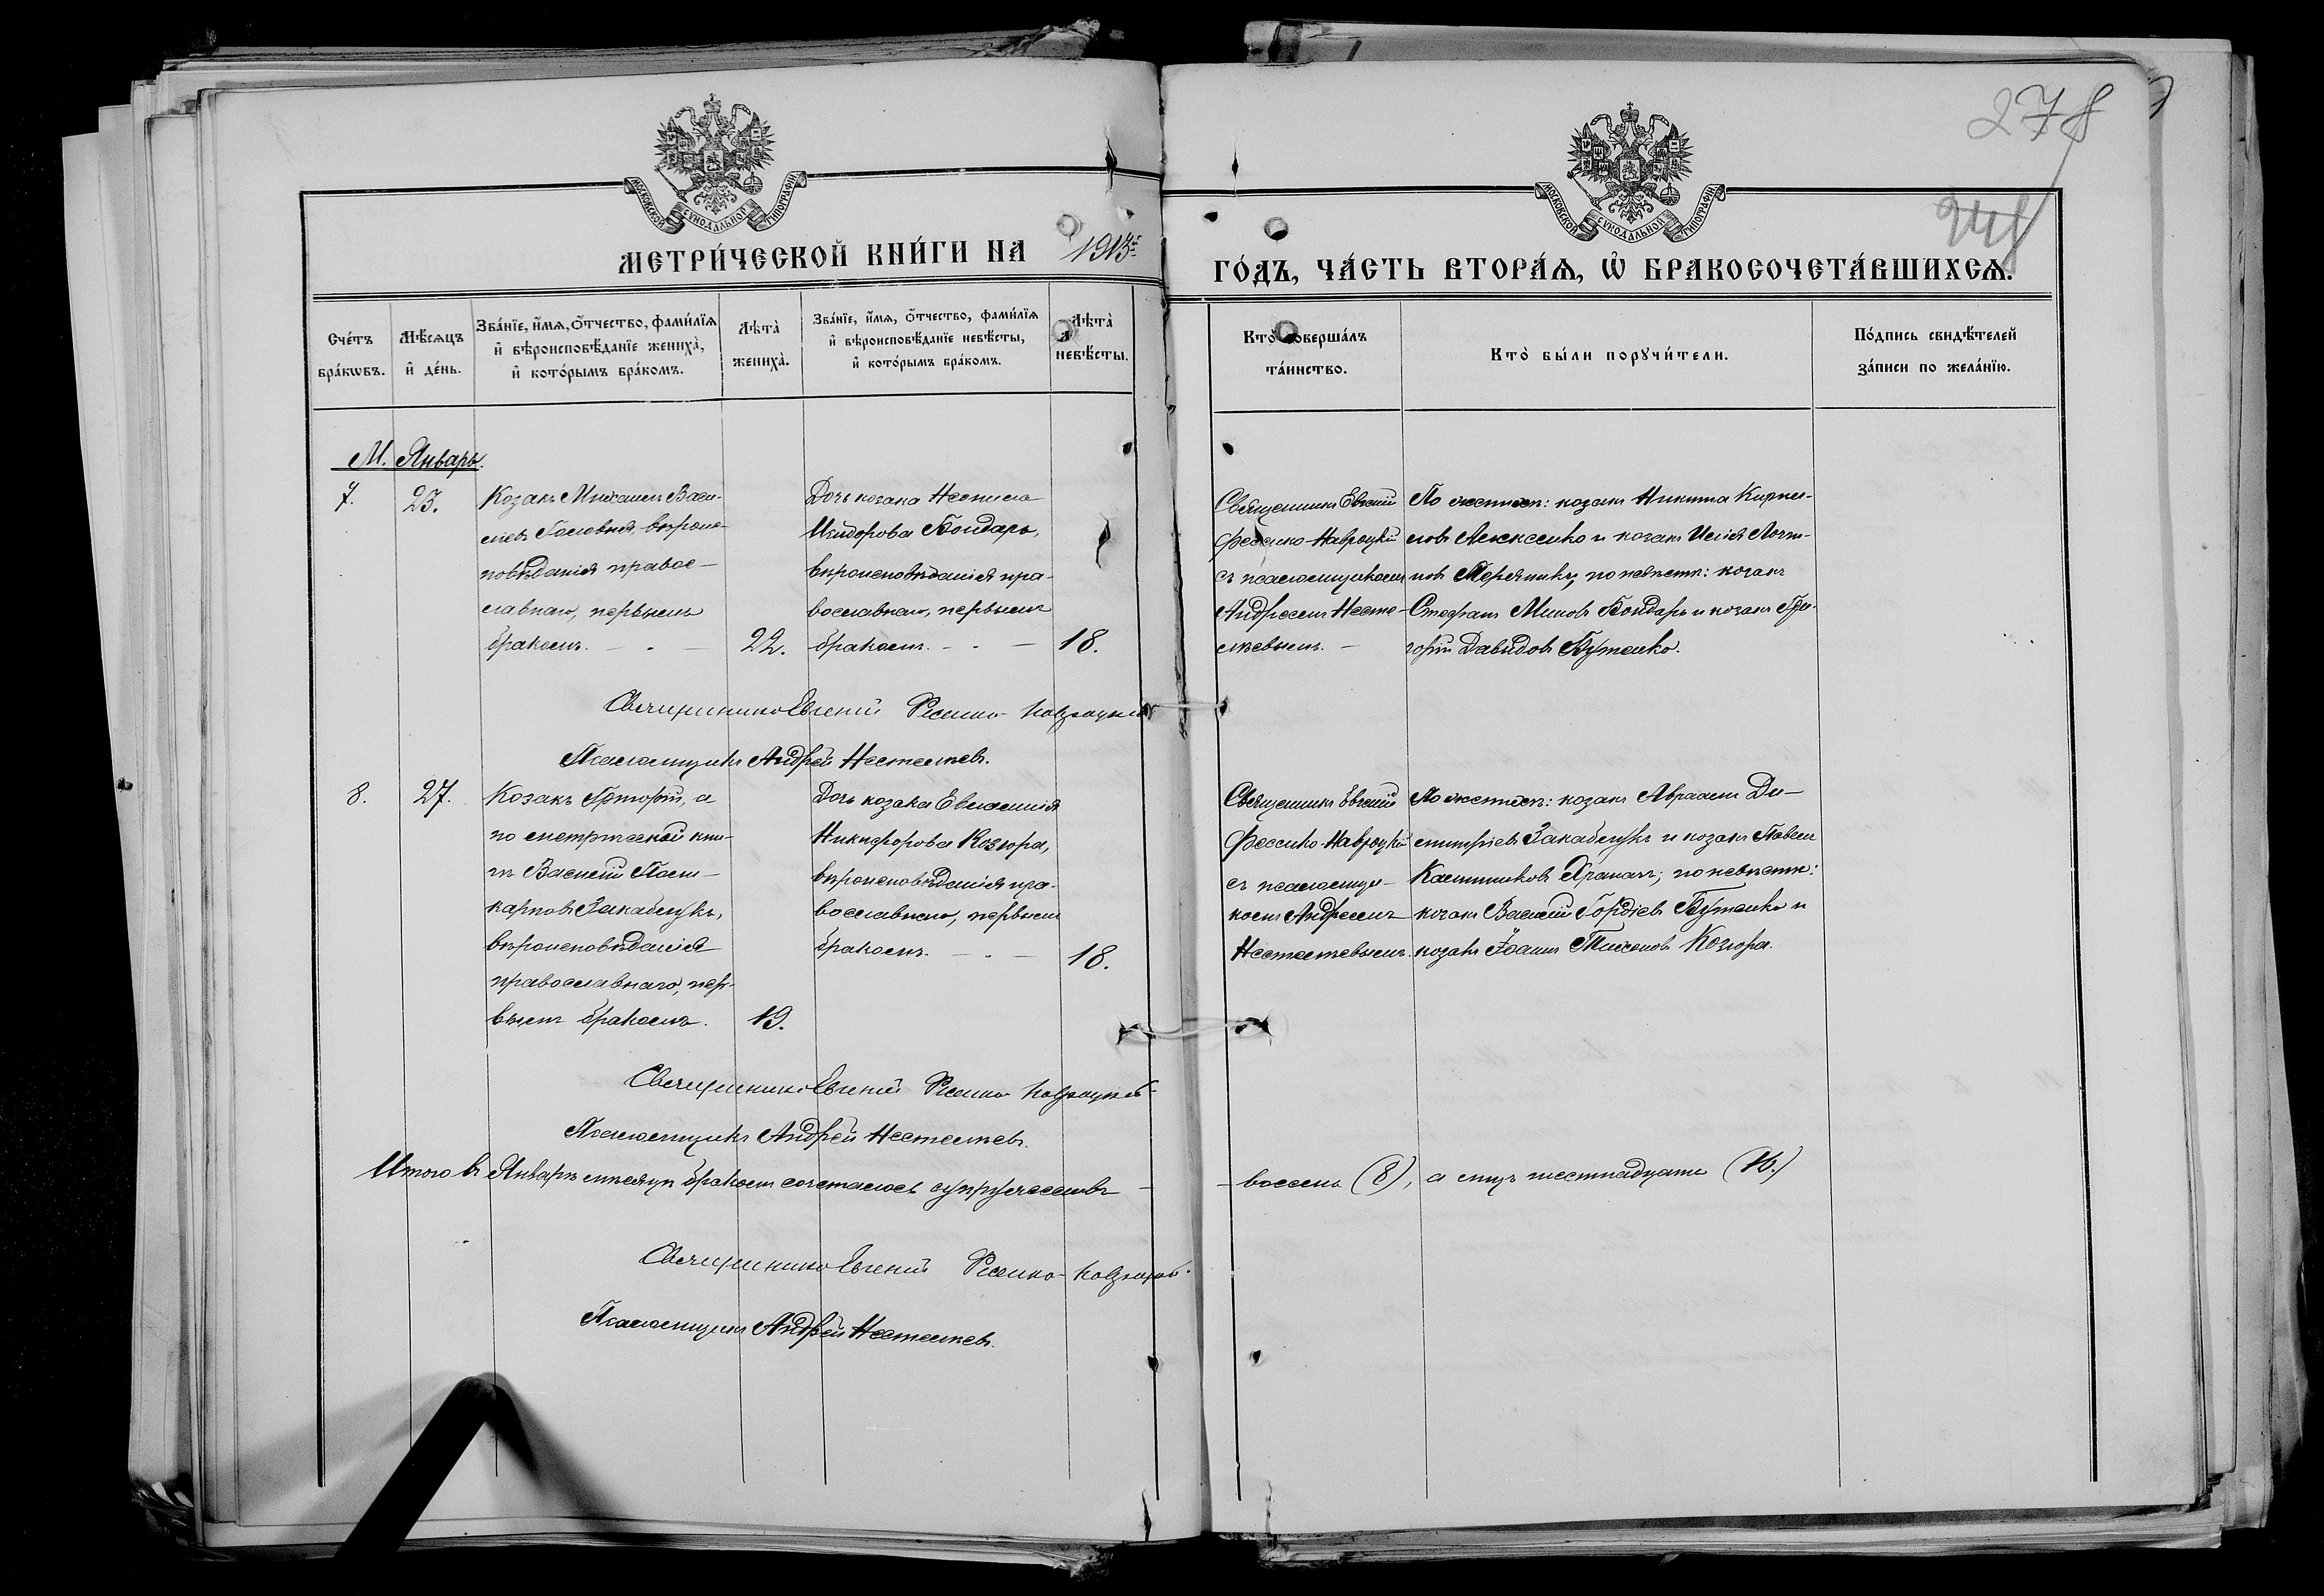 278
МОСКОВСКОЙ СѴНОДАЛЬНОЙ ТИПОГРАФІИ
МОСКОВСКОЙ СѴНОДАЛЬНОЙ ТИПОГРАФІИ
МЕТРИ́ЧЕСКОЙ КНИ́ГИ НА 1913й
ГО́ДЪ, ЧА́СТЬ ВТОРА́Ѧ, Ѡ҆ БРАКОСОЧЕТА́ВШИХСѦ.
Сче́тъ бра́кѡвъ.
Мѣ́сѧцъ и҆ де́нь.
Зва́нїе, и҆́мѧ, ѻ҆́тчество, фами́лїѧ
и҆ вѣроисповѣ́данїе жениха̀,
и҆ кото́рымъ бра́комъ.
Лѣта̀ жениха̀.
Зва́нїе, и҆́мѧ, ѻ҆́тчество, фами́лїѧ
и҆ вѣроисповѣ́данїе невѣ́сты,
и҆ кото́рымъ бра́комъ.
Лѣта̀ невѣ́сты.
Кто̀ соверша́лъ
та́инство.
Кто̀ бы́ли порꙋчи́тели.
По́дпись свидѣ́телей
за́писи по жела́нїю.
М. Январь.
7. 23.
Козакъ Михаилъ Васи-
льевъ Головня, вѣроис-
повѣданія правос-
лавнаго, первымъ
бракомъ. 22.
Дочь козака
Исидорова Бондарь,
вѣроисповѣданія пра-
вославнаго, первымъ
бракомъ. 18.
Священникъ Евгеній
Фесенко-Навроцкій
съ псаломщикомъ
Андреемъ Несте-
По женихѣ: козакъ Никита Кирил-
ловъ Алексенко и козакъ Илія
по невѣстѣ: козакъ
Стефанъ Миновъ Бондарь и козакъ Гри-
горій Давидовъ Бутенко.
Священникъ Евгеній Фесенко-Навроцкій
Псаломщикъ Андрей
8. 27.
Козакъ Григорій, а
по метрической кни-
гѣ Василій Поли-
карповъ Закаблукъ,
вѣроисповѣданія
православнаго, пер-
вымъ бракомъ. 19.
Дочь козака Евгенія
Никифорова Козюра,
вѣроисповѣданія пра-
вославнаго, первымъ
бракомъ. 18.
Священникъ Евгеній
Фесенко-Навроцкій
съ псаломщи-
комъ Андреемъ
По женихѣ: козакъ Авраамъ Ди-
митріевъ Закаблукъ и козакъ Павелъ
Каллиниковъ Храпачъ; по невѣстѣ:
козакъ Василій Гордіевъ Бутенко и
козакъ Іоаннъ Тихоновъ Козюра.
Священникъ Евгеній Фесенко-Навроцкій
Псаломщикъ Андрей
Итого въ Январѣ мѣсяцѣ бракомъ сочеталось супружествъ
восемь (8), а лицъ шестнадцать (16.)
Священникъ Евгеній Фесенко-Навроцкій
Псаломщикъ Андрей